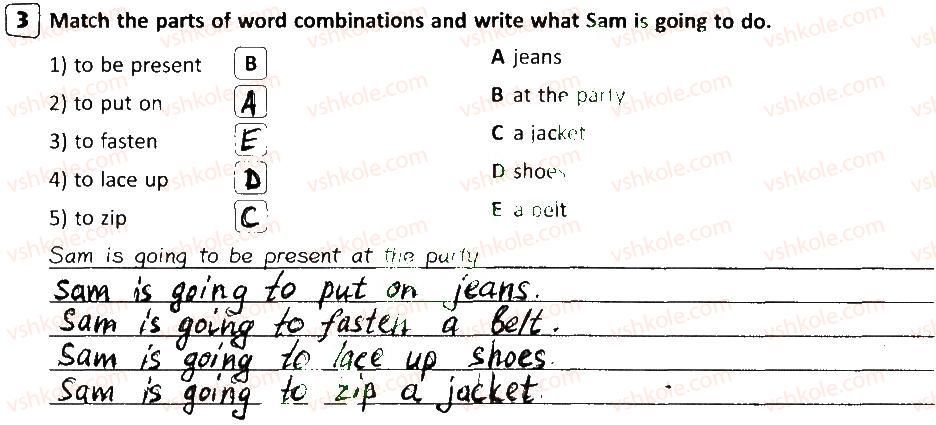 3 Match the parts of word combinations and write what Sam is going to do.
1) to be present B A jeans
2) to put on A B at the party
3) to fasten E C a jacket
4) to lace up D D shoes
5) to zip C E a belt
Sam is going to be present at the party
Sam is going to put on jeans.
Sam is going to fasten a belt.
Sam is going to lace up shoes.
Sam is going to zip a jacket.
vshkole.com